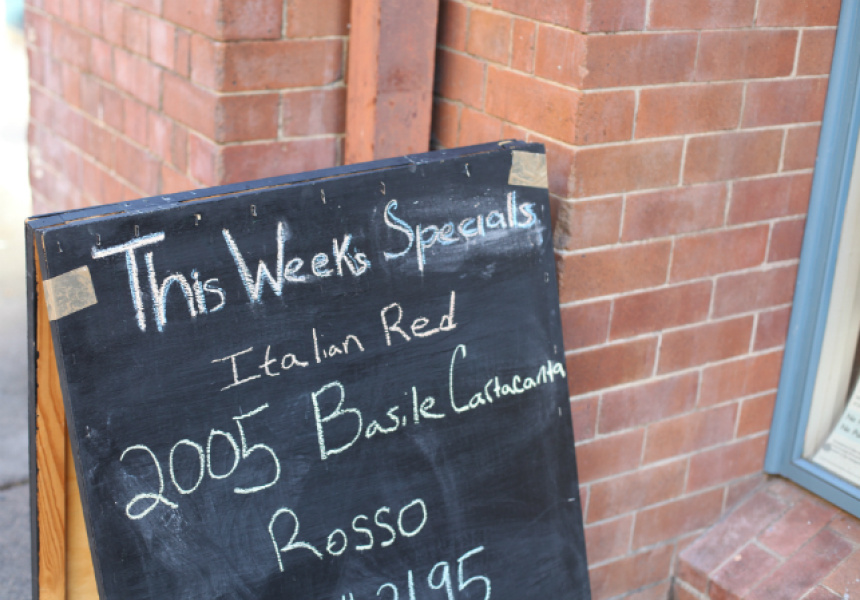 This Week's Specials
Italian Red
2005 Basile Cartacanta
Rosso
2195